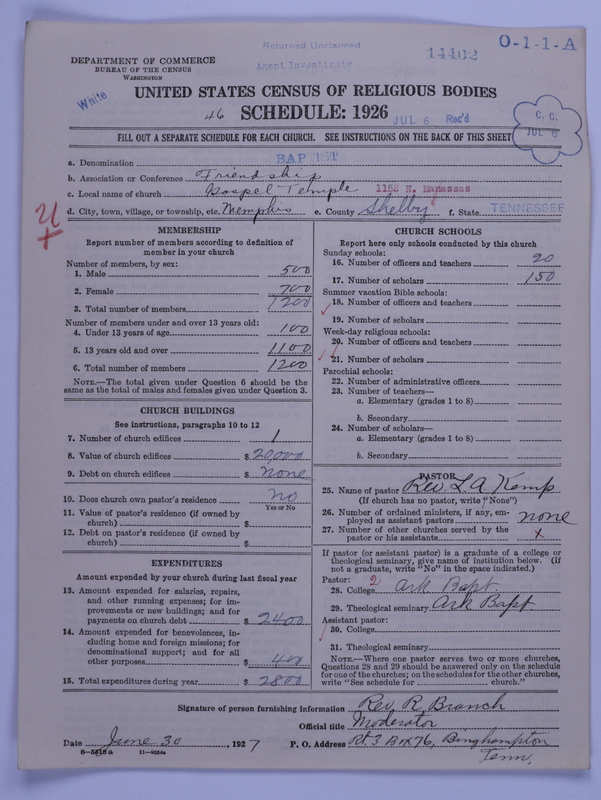 Returned Unclaimed
14402
O-1-1-A
DEPARTMENT OF COMMERCE
BUREAU OF THE CENSUS
WASHINGTON
Agent Investigate
White
UNITED STATES CENSUS OF RELIGIOUS BODIES
46 SCHEDULE: 1926 JUL 6 Rec'd
C. C.
JUL 6
FILL OUT A SEPARATE SCHEDULE FOR EACH CHURCH. SEE INSTRUCTIONS ON THE BACK OF THIS SHEET
a. Denomination BAPTIST
b. Association or Conference Friendship
c. Local name of church Gospel Temple 1152 N. Manassas
d. City, town, village, or township, etc. Memphis e. County Shelby f. State TENNESSEE
MEMBERSHIP
Report number of members according to definition of
member in your church
Number of members, by sex:
1. Male 500
2. Female 700
3. Total number of members 1200
Number of members under and over 13 years old:
4. Under 13 years of age 100
5. 13 years old and over 1100
6. Total number of members 1200
NOTE.—The total given under Question 6 should be the
same as the total of males and females given under Question 3.
CHURCH BUILDINGS
See instructions, paragraphs 10 to 12
7. Number of church edifices 1
8. Value of church edifices $ 20,000
9. Debt on church edifices $ None
10. Does church own pastor's residence No
Yes or No
11. Value of pastor's residence (if owned by
church) $
12. Debt on pastor's residence (if owned by
church) $
EXPENDITURES
Amount expended by your church during last fiscal year
13. Amount expended for salaries, repairs,
and other running expenses; for im-
provements or new buildings; and for
payments on church debt $ 2400
14. Amount expended for benevolences, in-
cluding home and foreign missions; for
denominational support; and for all
other purposes $ 400
15. Total expenditures during year $ 2800
CHURCH SCHOOLS
Report here only schools conducted by this church
Sunday schools:
16. Number of officers and teachers 20
17. Number of scholars 150
Summer vacation Bible schools:
18. Number of officers and teachers
19. Number of scholars
Week-day religious schools:
20. Number of officers and teachers
21. Number of scholars
Parochial schools:
22. Number of administrative officers
23. Number of teachers—
a. Elementary (grades 1 to 8)
b. Secondary
24. Number of scholars—
a. Elementary (grades 1 to 8)
b. Secondary
PASTOR
25. Name of pastor Rev. L. A. Kemp
(If church has no pastor, write "None")
26. Number of ordained ministers, if any, em-
ployed as assistant pastors none
27. Number of other churches served by the
pastor or his assistants x
If pastor (or assistant pastor) is a graduate of a college or
theological seminary, give name of institution below. (If
not a graduate, write "No" in the space indicated.)
Pastor:
2
28. College Ark Bapt
29. Theological seminary Ark Bapt
Assistant pastor:
30. College
31. Theological seminary
NOTE.—Where one pastor serves two or more churches,
Questions 28 and 29 should be answered only on the schedule
for one of the churches; on the schedules for the other churches,
write "See schedule for church."
Signature of person furnishing information Rev R. Branch
Official title Moderator
Date June 30, 1927 P. O. Address Rt. 3 Box 76, Binghampton
Tenn.